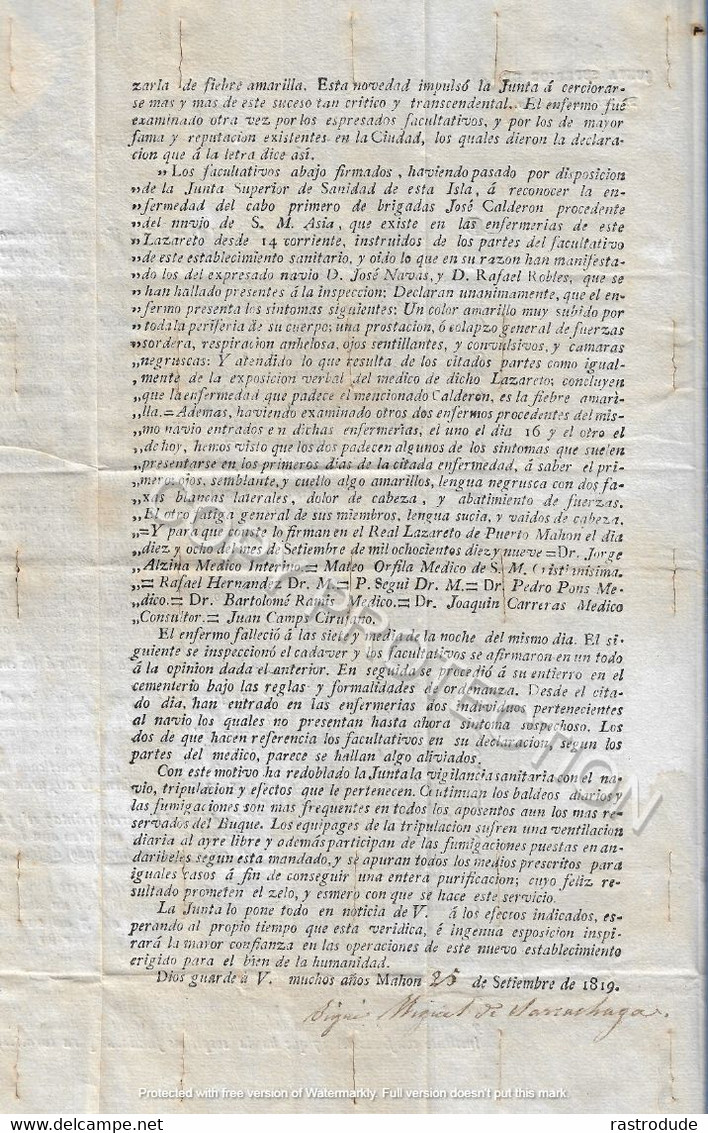 zarla de fiebre amarilla. Esta novedad impulsó la Junta á cerciorar-
se mas y mas de este suceso tan critico y transcendental. El enfermo fué
examinado otra vez por los espresados facultativos, y por los de mayor
fama y reputacion existentes en la Ciudad, los quales dieron la declara-
cion que á la letra dice así.
„ Los facultativos abajo firmados, haviendo pasado por disposicion
„de la Junta Superior de Sanidad de esta Isla, á reconocer la en-
„fermedad del cabo primero de brigadas José Calderon procedente
„del nnvio de S. M. Asia, que existe en las enfermerias de este
„Lazareto desde 14 corriente, instruidos de los partes del facultativo
„de este establecimiento sanitario, y oido lo que en su razon han manifesta-
„do los del expresado navio D. José Navas, y D. Rafael Robles, que se
„han hallado presentes á la inspeccion; Declaran unanimamente, que el en-
„fermo presenta los sintomas siguientes: Un color amarillo muy subido por
„toda la periferia de su cuerpo; una prostacion, ó colapzo general de fuerzas
„sordera, respiracion anhelosa, ojos sentillantes, y convulsivos, y camaras
„negruscas: Y atendido lo que resulta de los citados partes como igual-
„mente de la exposicion verbal del medico de dicho Lazareto; concluyen
„que la enfermedad que padece el mencionado Calderon, es la fiebre amari-
„lla.=Ademas, haviendo examinado otros dos enfermos procedentes del mis-
„mo navio entrados en dichas enfermerias, el uno el dia 16 y el otro el
„de hoy, hemos visto que los dos padecen algunos de los sintomas que suelen
„presentarse en los primeros dias de la citada enfermedad, á saber el pri-
„mero: ojos, semblante, y cuello algo amarillos, lengua negrusca con dos fa-
„xas blancas laterales, dolor de cabeza, y abatimiento de fuerzas.
„El otro fatiga general de sus miembros, lengua sucia, y vaidos de cabeza.
„=Y para que conste lo firman en el Real Lazareto de Puerto Mahon el dia
„diez y ocho del mes de Setiembre de mil ochocientos diez y nueve=Dr. Jorge
„Alzina Medico Interino.= Mateo Orfila Medico de S. M. Cristianisima.
„= Rafael Hernandez Dr. M.= P. Segui Dr. M.= Dr. Pedro Pons Me-
„dico.= Dr. Bartolomé Ramis Medico.= Dr. Joaquin Carreras Medico
„Consultor.= Juan Camps Cirujano.
El enfermo falleció á las siete y media de la noche del mismo dia. El si-
guiente se inspeccionó el cadaver y los facultativos se afirmaron en un todo
á la opinion dada el anterior. En seguida se procedió á su entierro en el
cementerio bajo las reglas y formalidades de ordenanza. Desde el cita-
do dia, han entrado en las enfermerias dos individuos pertenecientes
al navio los quales no presentan hasta ahora sintoma sospechoso. Los
dos de que hacen referencia los facultativos en su declaracion, segun los
partes del medico, parece se hallan algo aliviados.
Con este motivo ha redoblado la Junta la vigilancia sanitaria con el na-
vio, tripulacion y efectos que le pertenecen. Continuan los baldeos diarios y
las fumigaciones son mas frequentes en todos los aposentos aun los mas re-
servados del Buque. Los equipages de la tripulacion sufren una ventilacion
diaria al ayre libre y además participan de las fumigaciones puestas en an-
daribeles segun esta mandado, y se apuran todos los medios prescritos para
iguales casos á fin de conseguir una entera purificacion; cuyo feliz re-
sultado prometen el zelo, y esmero con que se hace este servicio.
La Junta lo pone todo en noticia de V. á los efectos indicados, es-
perando al propio tiempo que esta veridica, é ingenua esposicion inspi-
rará la mayor confianza en las operaciones de este nuevo establecimiento
erigido para el bien de la humanidad.
Dios guarde á V. muchos años Mahon 25 de Setiembre de 1819.
Miguel de
COPY PROTECTION
Protected with free version of Watermarkly. Full version doesn't put this mark.
rastrodude
delcampe.net